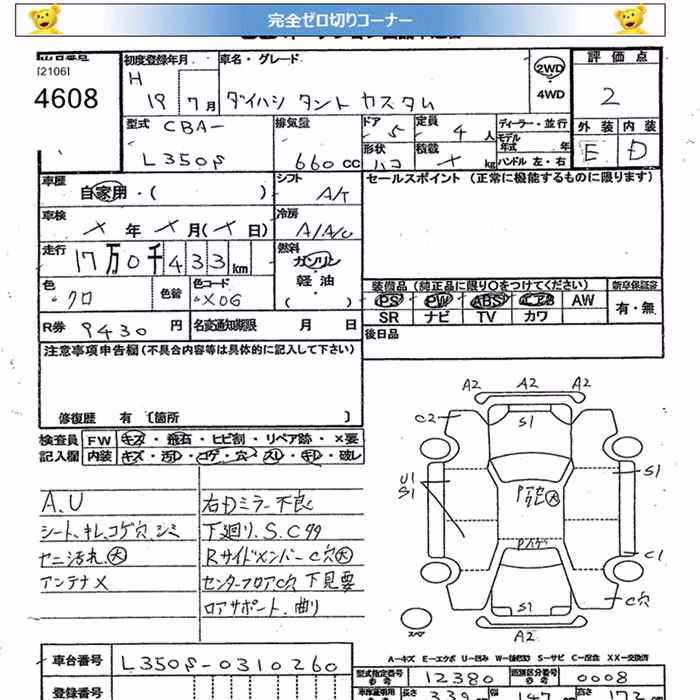 完全ゼロ切りコーナー
[2106]
4608
初度登録年月 車名・グレード
H 19 7月 ダイハツ タント カスタム
2WD
4WD
評価点
2
外装 内装
E D
型式 CBA-
L350S
排気量
660 cc
ドア 5 定員 4 人
形状 ハコ 積載 × kg
ディーラー・並行
モデル年式 年
ハンドル 左・右
車歴
自家用・( )
シフト A/t
車検
× 年 × 月(× 日)
冷房 A/A/C
走行
17万0千433km
燃料
ガソリン
軽油
( )
色 クロ 色替 色コード X06
R券 9430 円 名変通知期限 月 日
セールスポイント (正常に機能するものに限ります)
装備品 (純正品に限り○をつけてください) 新車保証書
PS PW ABS エアB AW 有・無
SR ナビ TV カワ
後日品
注意事項申告欄 (不具合内容等は具体的に記入して下さい)
修復歴 有 〔箇所 〕
検査員 FW キズ・飛石・ヒビ割・リペア跡・×要
記入欄 内装 キズ・汚レ・コゲ・穴・スレ・キレ・破レ
A.U
シート.キレ.コゲ穴.シミ
ヤニ汚れ.大
アンテナ×
右Dミラー不良
下廻り.S.C
Rサイドメンバー C穴 大
センターフロアC穴 下見要
ロアサポート.曲り
A2 A2 A2
C2 S1
U1
S1
S1
大
C1
C穴
S1
A2
スペア
A－キズ E－エクボ U－凹み W－補修跡 S－サビ C－腐食 XX－交換済
車台番号 L350S-0310260
型式指定番号 12380 類別区分番号 0008
登録番号
長さ 339 幅 147 高さ 172